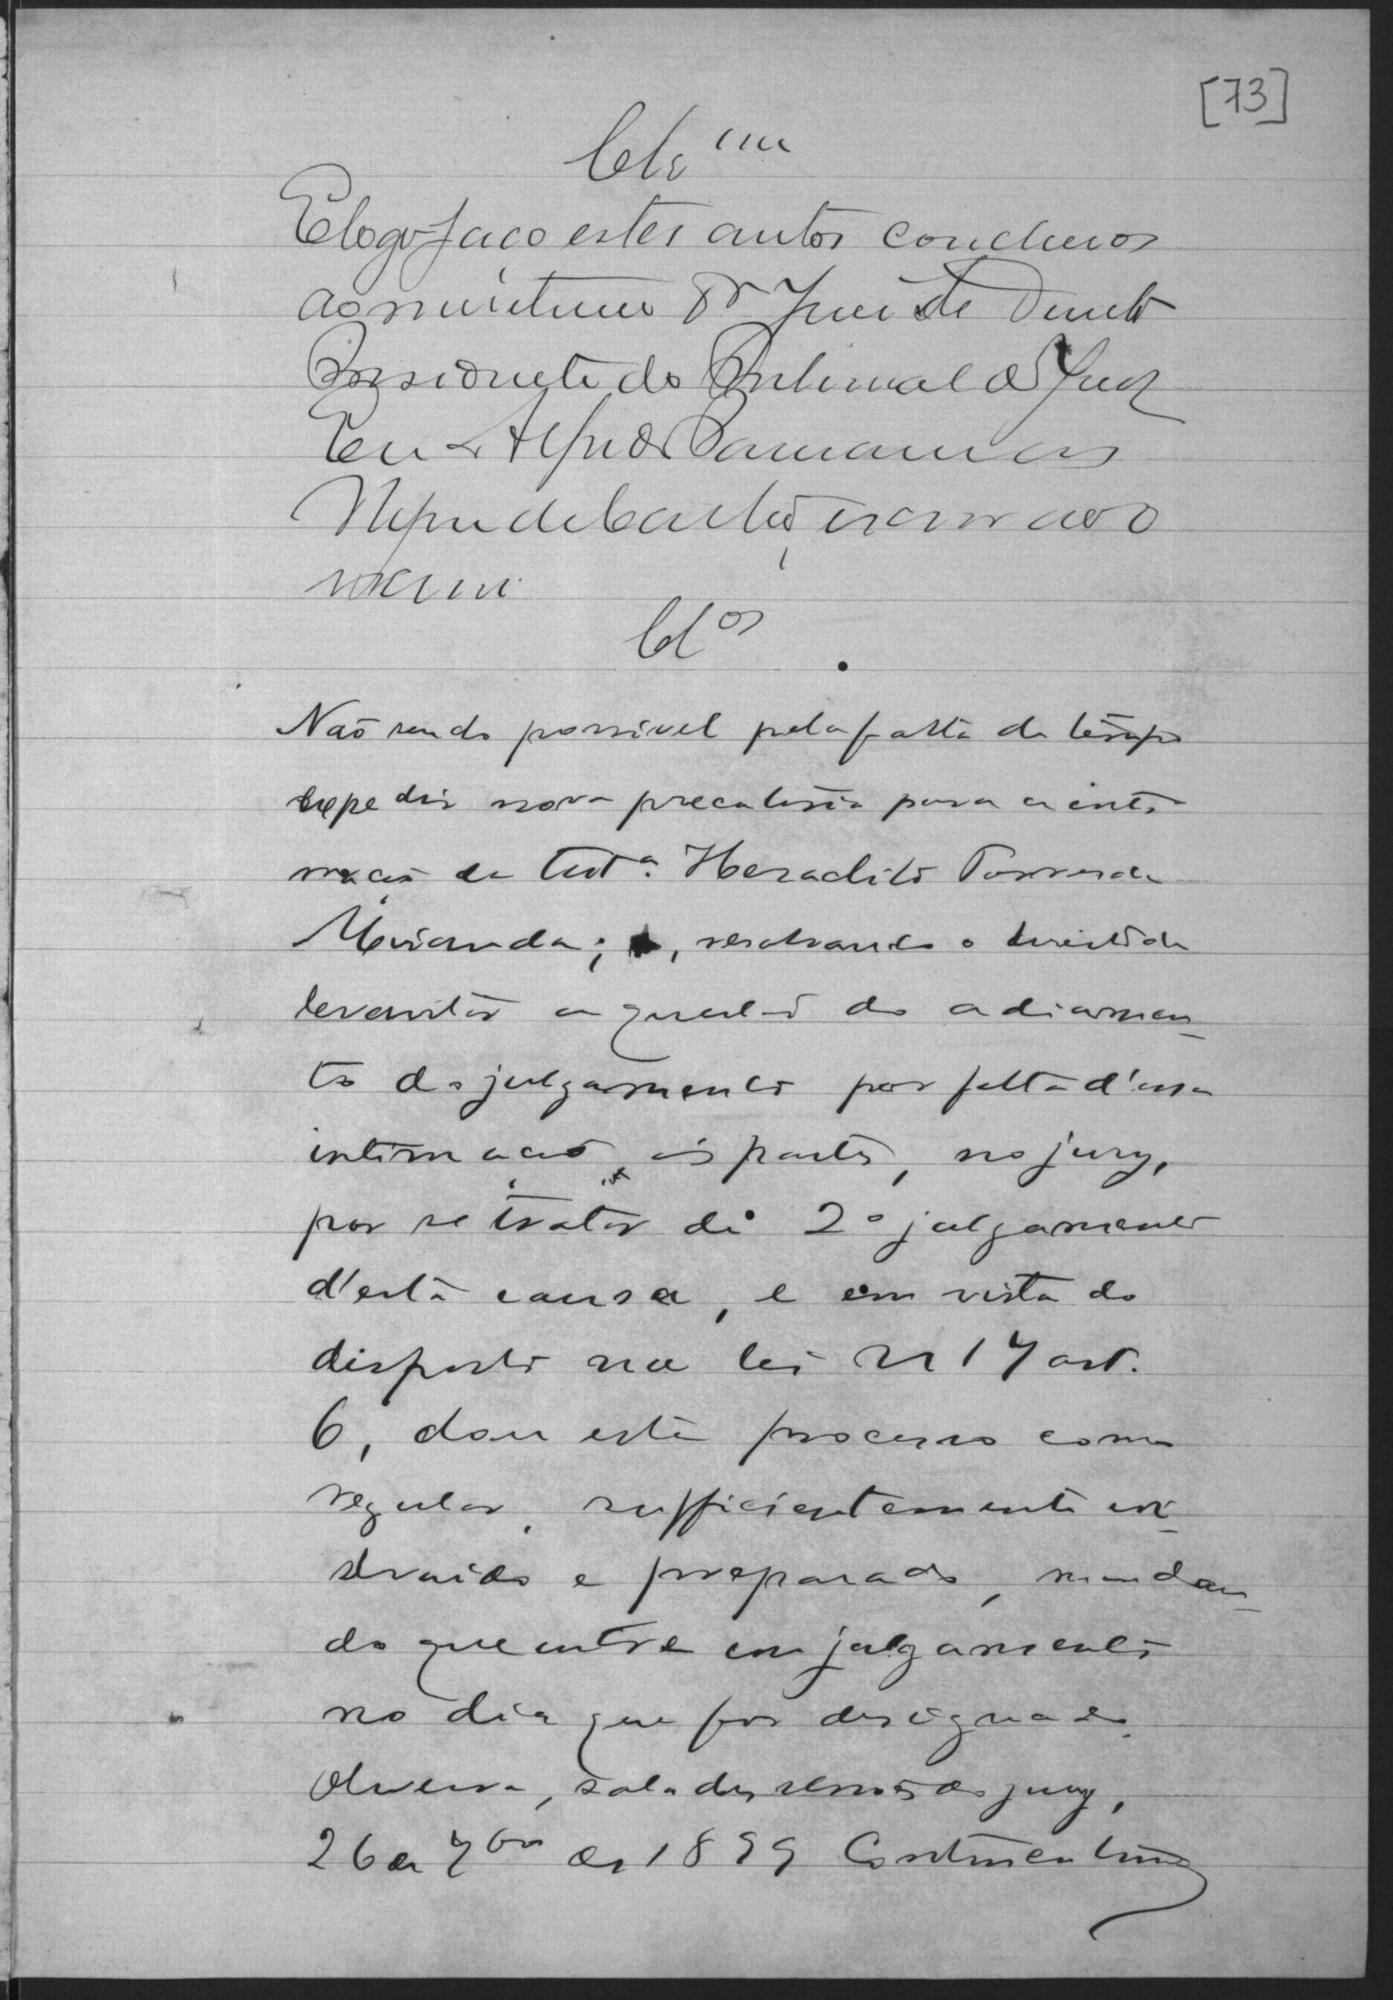 [73]
Cls
E logo faço estes autos conclusos
ao meritissimo Dr Juiz de Direito
Presidente do Tribunal do Jury
Eu Alfredo
escrivão o
escrevi
Clos
Não sendo possivel pela falta de tempo
expedir nova precatoria para a inti
mação da testa. Heraclito
Miranda; , resalvando o direito de
levantar a questão do adiamen
to do julgamento por falta d'essa
intimação, ás partes, no jury,
por se tratar de 2o julgamento
d'esta causa, e em vista do
disposto na lei n 17 art.
6, dou este processo como
regular, sufficientemente in
struido e preparado, mandan
do que entre em julgamento
no dia que for designado.
Oliveira, sala das sessões do jury,
26 de 7bro de 1899